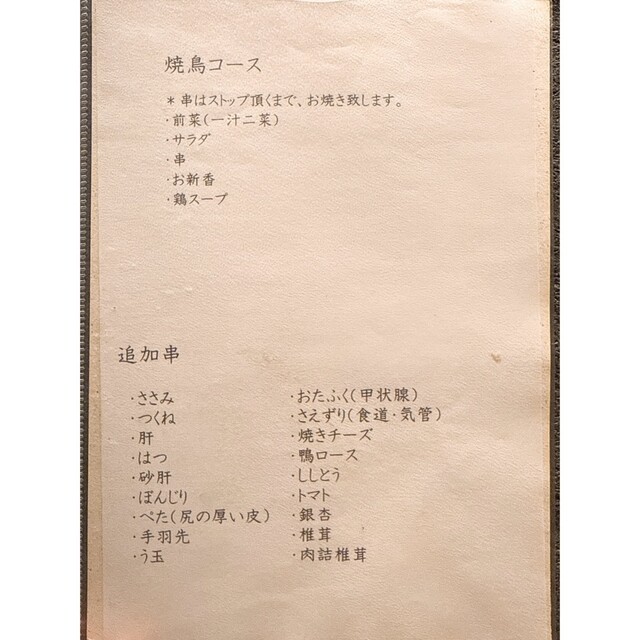 焼鳥コース
＊串はストップ頂くまで、お焼き致します。
・前菜(一汁二菜)
・サラダ
・串
・お新香
・鶏スープ
追加串
・ささみ
・つくね
・肝
・はつ
・砂肝
・ぼんじり
・ぺた(尻の厚い皮)
・手羽先
・う玉
・おたふく(甲状腺)
・さえずり(食道・気管)
・焼きチーズ
・鴨ロース
・ししとう
・トマト
・銀杏
・椎茸
・肉詰椎茸